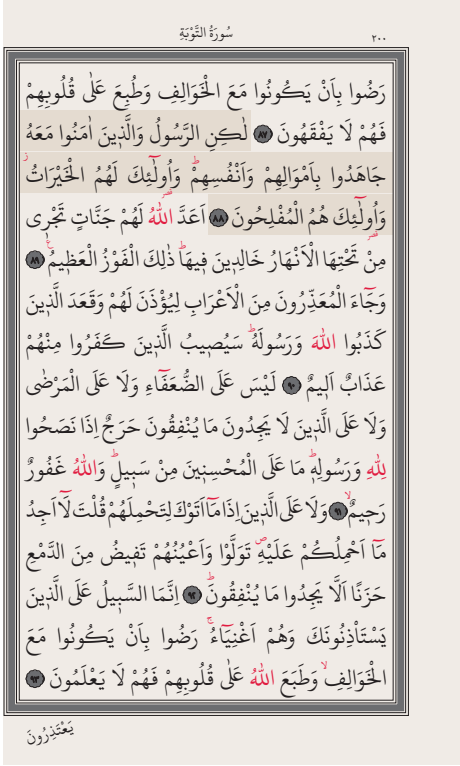 سُورَةُ التَّوْبَةِ
٢٠٠
رَضُوا بِاَنْ يَكُونُوا مَعَ الْخَوَالِفِ وَطُبِعَ عَلٰى قُلُوبِهِمْ
فَهُمْ لَا يَفْقَهُونَ ﴿٨٧﴾ لٰكِنِ الرَّسُولُ وَالَّذ۪ينَ اٰمَنُوا مَعَهُ
جَاهَدُوا بِاَمْوَالِهِمْ وَاَنْفُسِهِمْۜ وَاُو۬لٰٓئِكَ لَهُمُ الْخَيْرَاتُۘ
وَاُو۬لٰٓئِكَ هُمُ الْمُفْلِحُونَ ﴿٨٨﴾ اَعَدَّ اللّٰهُ لَهُمْ جَنَّاتٍ تَجْر۪ي
مِنْ تَحْتِهَا الْاَنْهَارُ خَالِد۪ينَ ف۪يهَاۜ ذٰلِكَ الْفَوْزُ الْعَظ۪يمُ۟ ﴿٨٩﴾
وَجَٓاءَ الْمُعَذِّرُونَ مِنَ الْاَعْرَابِ لِيُؤْذَنَ لَهُمْ وَقَعَدَ الَّذ۪ينَ
كَذَبُوا اللّٰهَ وَرَسُولَهُۜ سَيُص۪يبُ الَّذ۪ينَ كَفَرُوا مِنْهُمْ
عَذَابٌ اَل۪يمٌ ﴿٩٠﴾ لَيْسَ عَلَى الضُّعَفَٓاءِ وَلَا عَلَى الْمَرْضٰى
وَلَا عَلَى الَّذ۪ينَ لَا يَجِدُونَ مَا يُنْفِقُونَ حَرَجٌ اِذَا نَصَحُوا
لِلّٰهِ وَرَسُولِه۪ۜ مَا عَلَى الْمُحْسِن۪ينَ مِنْ سَب۪يلٍۜ وَاللّٰهُ غَفُورٌ
رَح۪يمٌۙ ﴿٩١﴾ وَلَا عَلَى الَّذ۪ينَ اِذَا مَٓا اَتَوْكَ لِتَحْمِلَهُمْ قُلْتَ لَٓا اَجِدُ
مَٓا اَحْمِلُكُمْ عَلَيْهِۖ تَوَلَّوْا وَاَعْيُنُهُمْ تَف۪يضُ مِنَ الدَّمْعِ
حَزَنًا اَلَّا يَجِدُوا مَا يُنْفِقُونَۜ ﴿٩٢﴾ اِنَّمَا السَّب۪يلُ عَلَى الَّذ۪ينَ
يَسْتَاْذِنُونَكَ وَهُمْ اَغْنِيَٓاءُۚ رَضُوا بِاَنْ يَكُونُوا مَعَ
الْخَوَالِفِۙ وَطَبَعَ اللّٰهُ عَلٰى قُلُوبِهِمْ فَهُمْ لَا يَعْلَمُونَ ﴿٩٣﴾
يَعْتَذِرُونَ